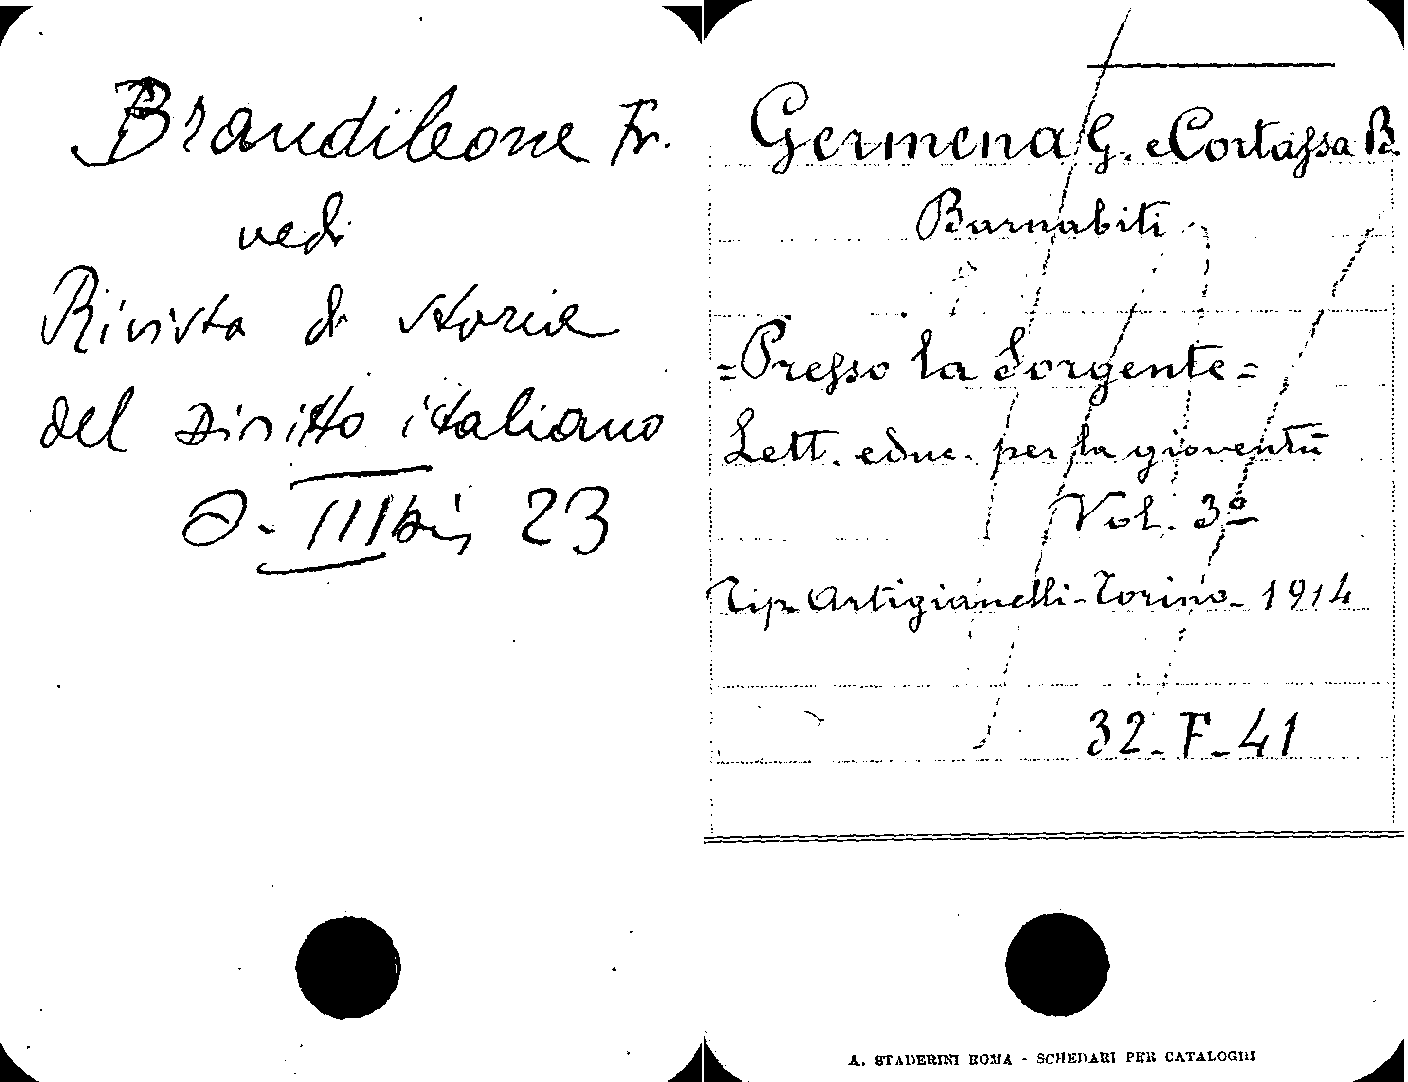 Brandileone Fr.
vedi
Rivista di storia
del diritto italiano
O. III bis 23
Germena G. e Cortassa B.
Barnabiti
=Presso la Sorgente=
Lett. educ. per la gioventù
Vol. 3º
Tip. Artigianelli - Torino - 1914
32-F-41
A. STADERINI ROMA - SCHEDARI PER CATALOGHI